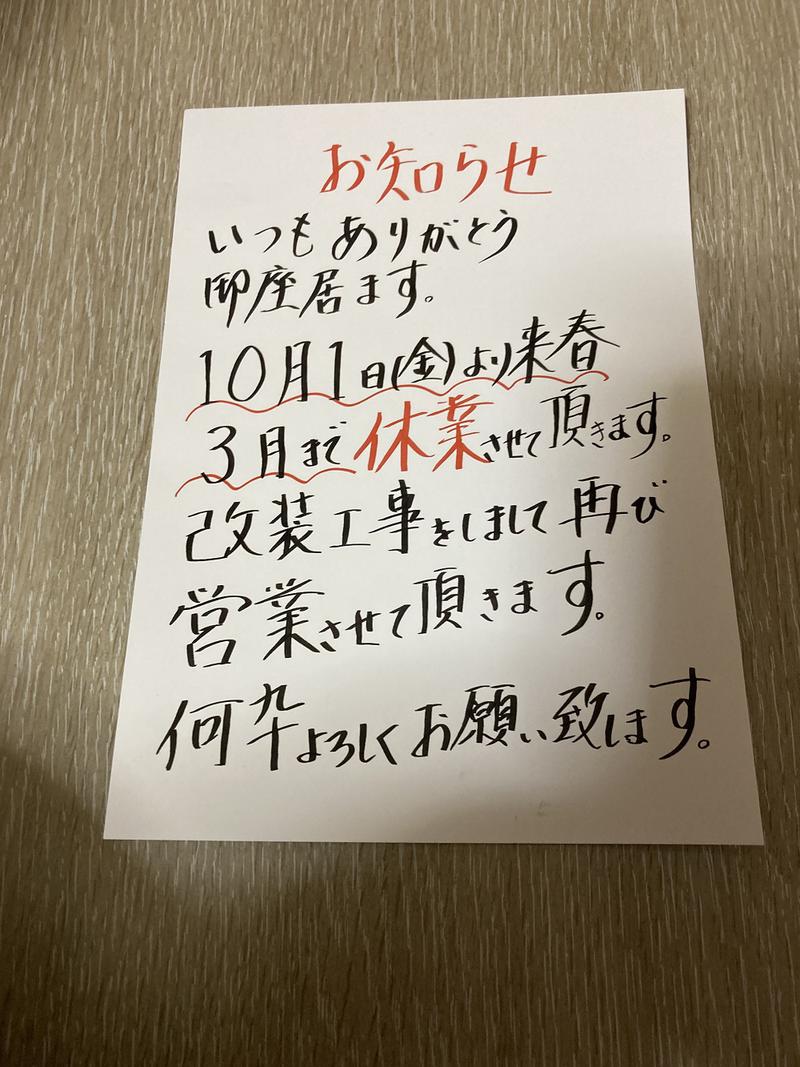 お知らせ
いつもありがとう
御座居ます。
10月1日(金)より来春
3月まで休業させて頂きます。
改装工事をしまして再び
営業させて頂きます。
何卒よろしくお願い致します。